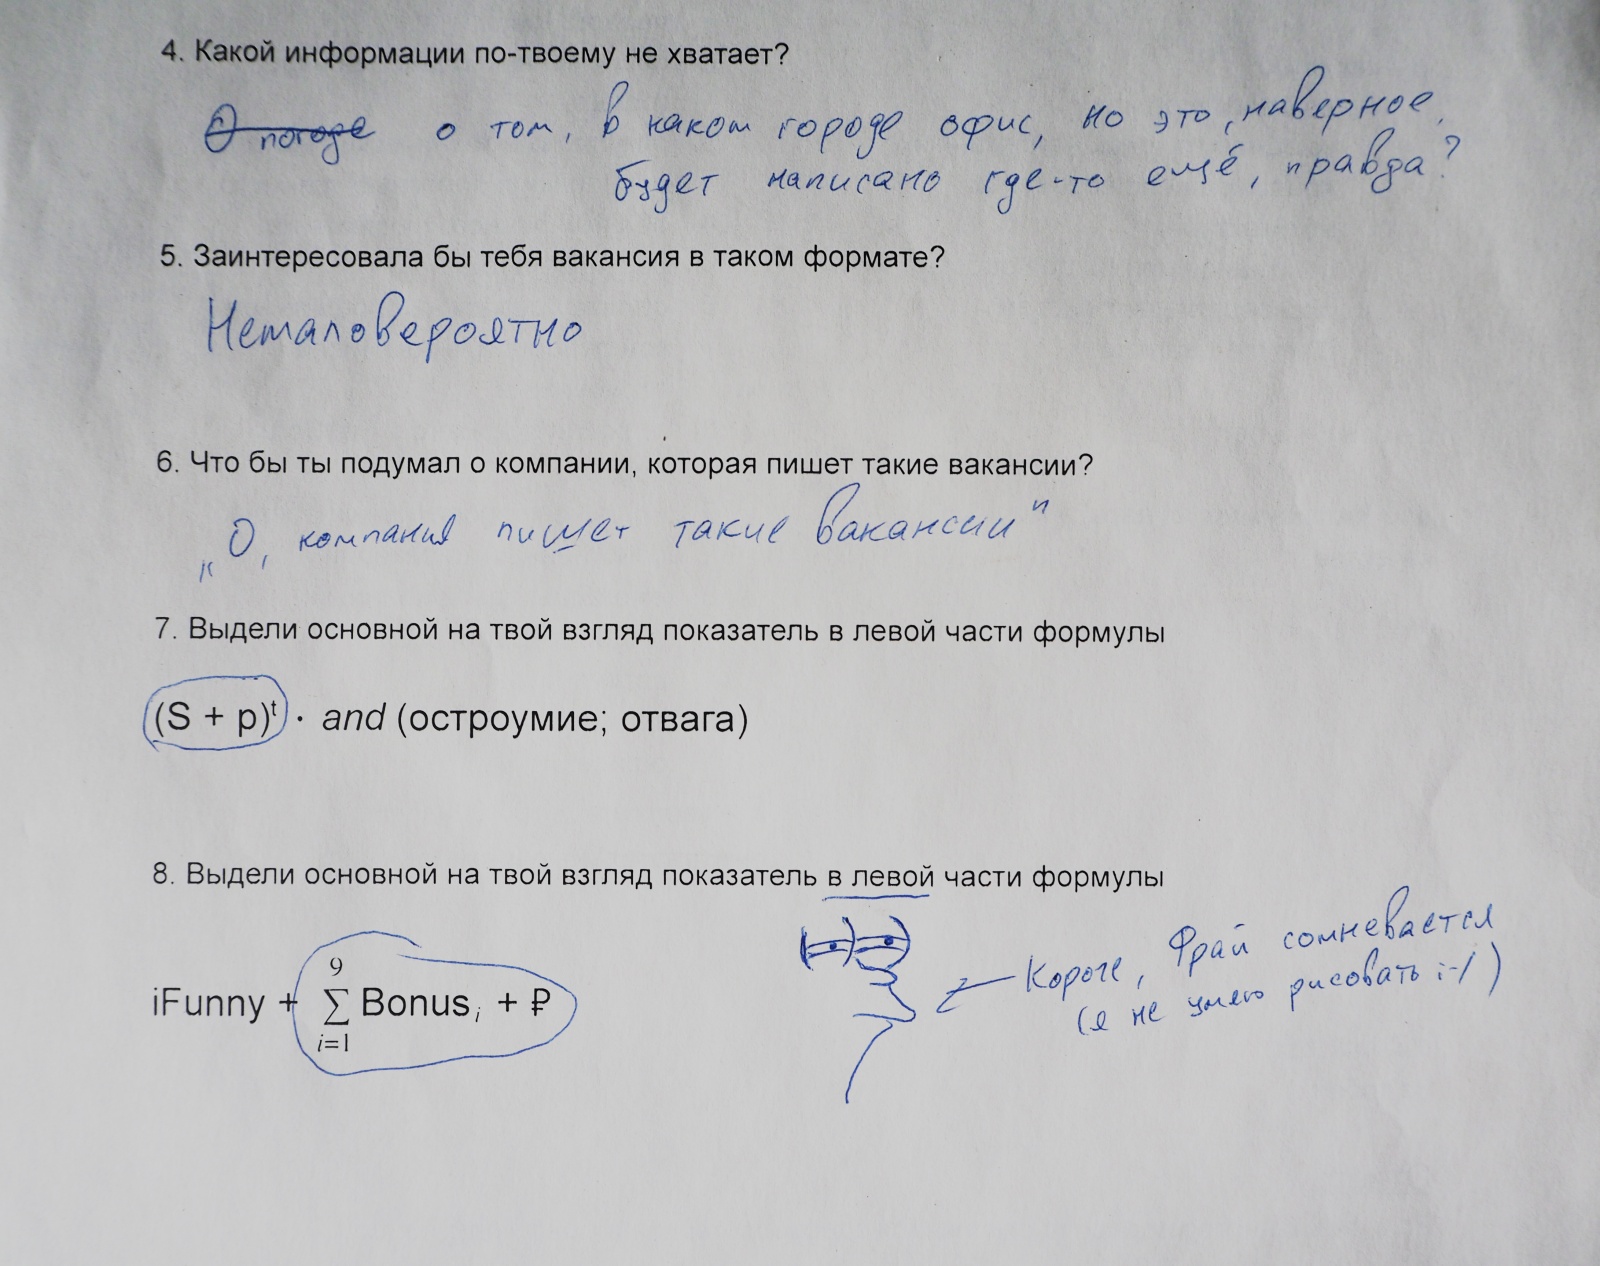 4. Какой информации по-твоему не хватает?
О погоде о том, в каком городе офис, но это, наверное,
будет написано где-то ещё, правда?
5. Заинтересовала бы тебя вакансия в таком формате?
Немаловероятно
6. Что бы ты подумал о компании, которая пишет такие вакансии?
„О, компания пишет такие вакансии"
7. Выдели основной на твой взгляд показатель в левой части формулы
(S + p)ᵗ · and (остроумие; отвага)
8. Выдели основной на твой взгляд показатель в левой части формулы
Короче, Фрай сомневается
(я не умею рисовать :-/)
9
iFunny + ∑ Bonus i + ₽
i=1